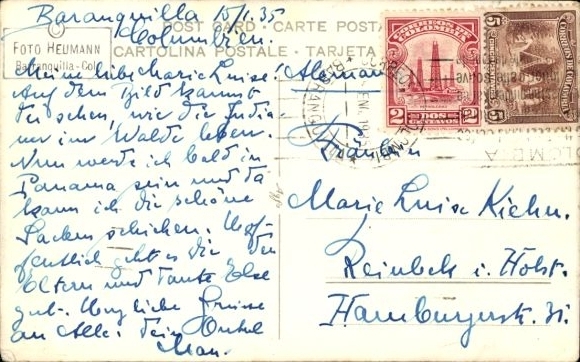 Baranquilla 15/1.35
Columbien.
POST CARD - CARTE POSTA
CARTOLINA POSTALE - TARJETA
FOTO HEUMANN
Barranquilla-Col.
Meine liebe Marie Luise!
Auf dem Bild kannst
du sehen, wie die India
ner im Walde leben.
Nun werde ich bald in
Panama sein und da
kann ich dir schöne
Sachen schicken. Hoff
entlich geht es dir den
Eltern und Tante Else
gut. Herzliche Grüsse
an Alle. Dein Onkel
Max.
CORREOS DE
COLOMBIA
2 DOS 2
CENTAVOS
5
5
Alemania
Fräulein
Marie Luise Kiehn.
Reinbek i. Holst.
Hamburgerstr. 31.